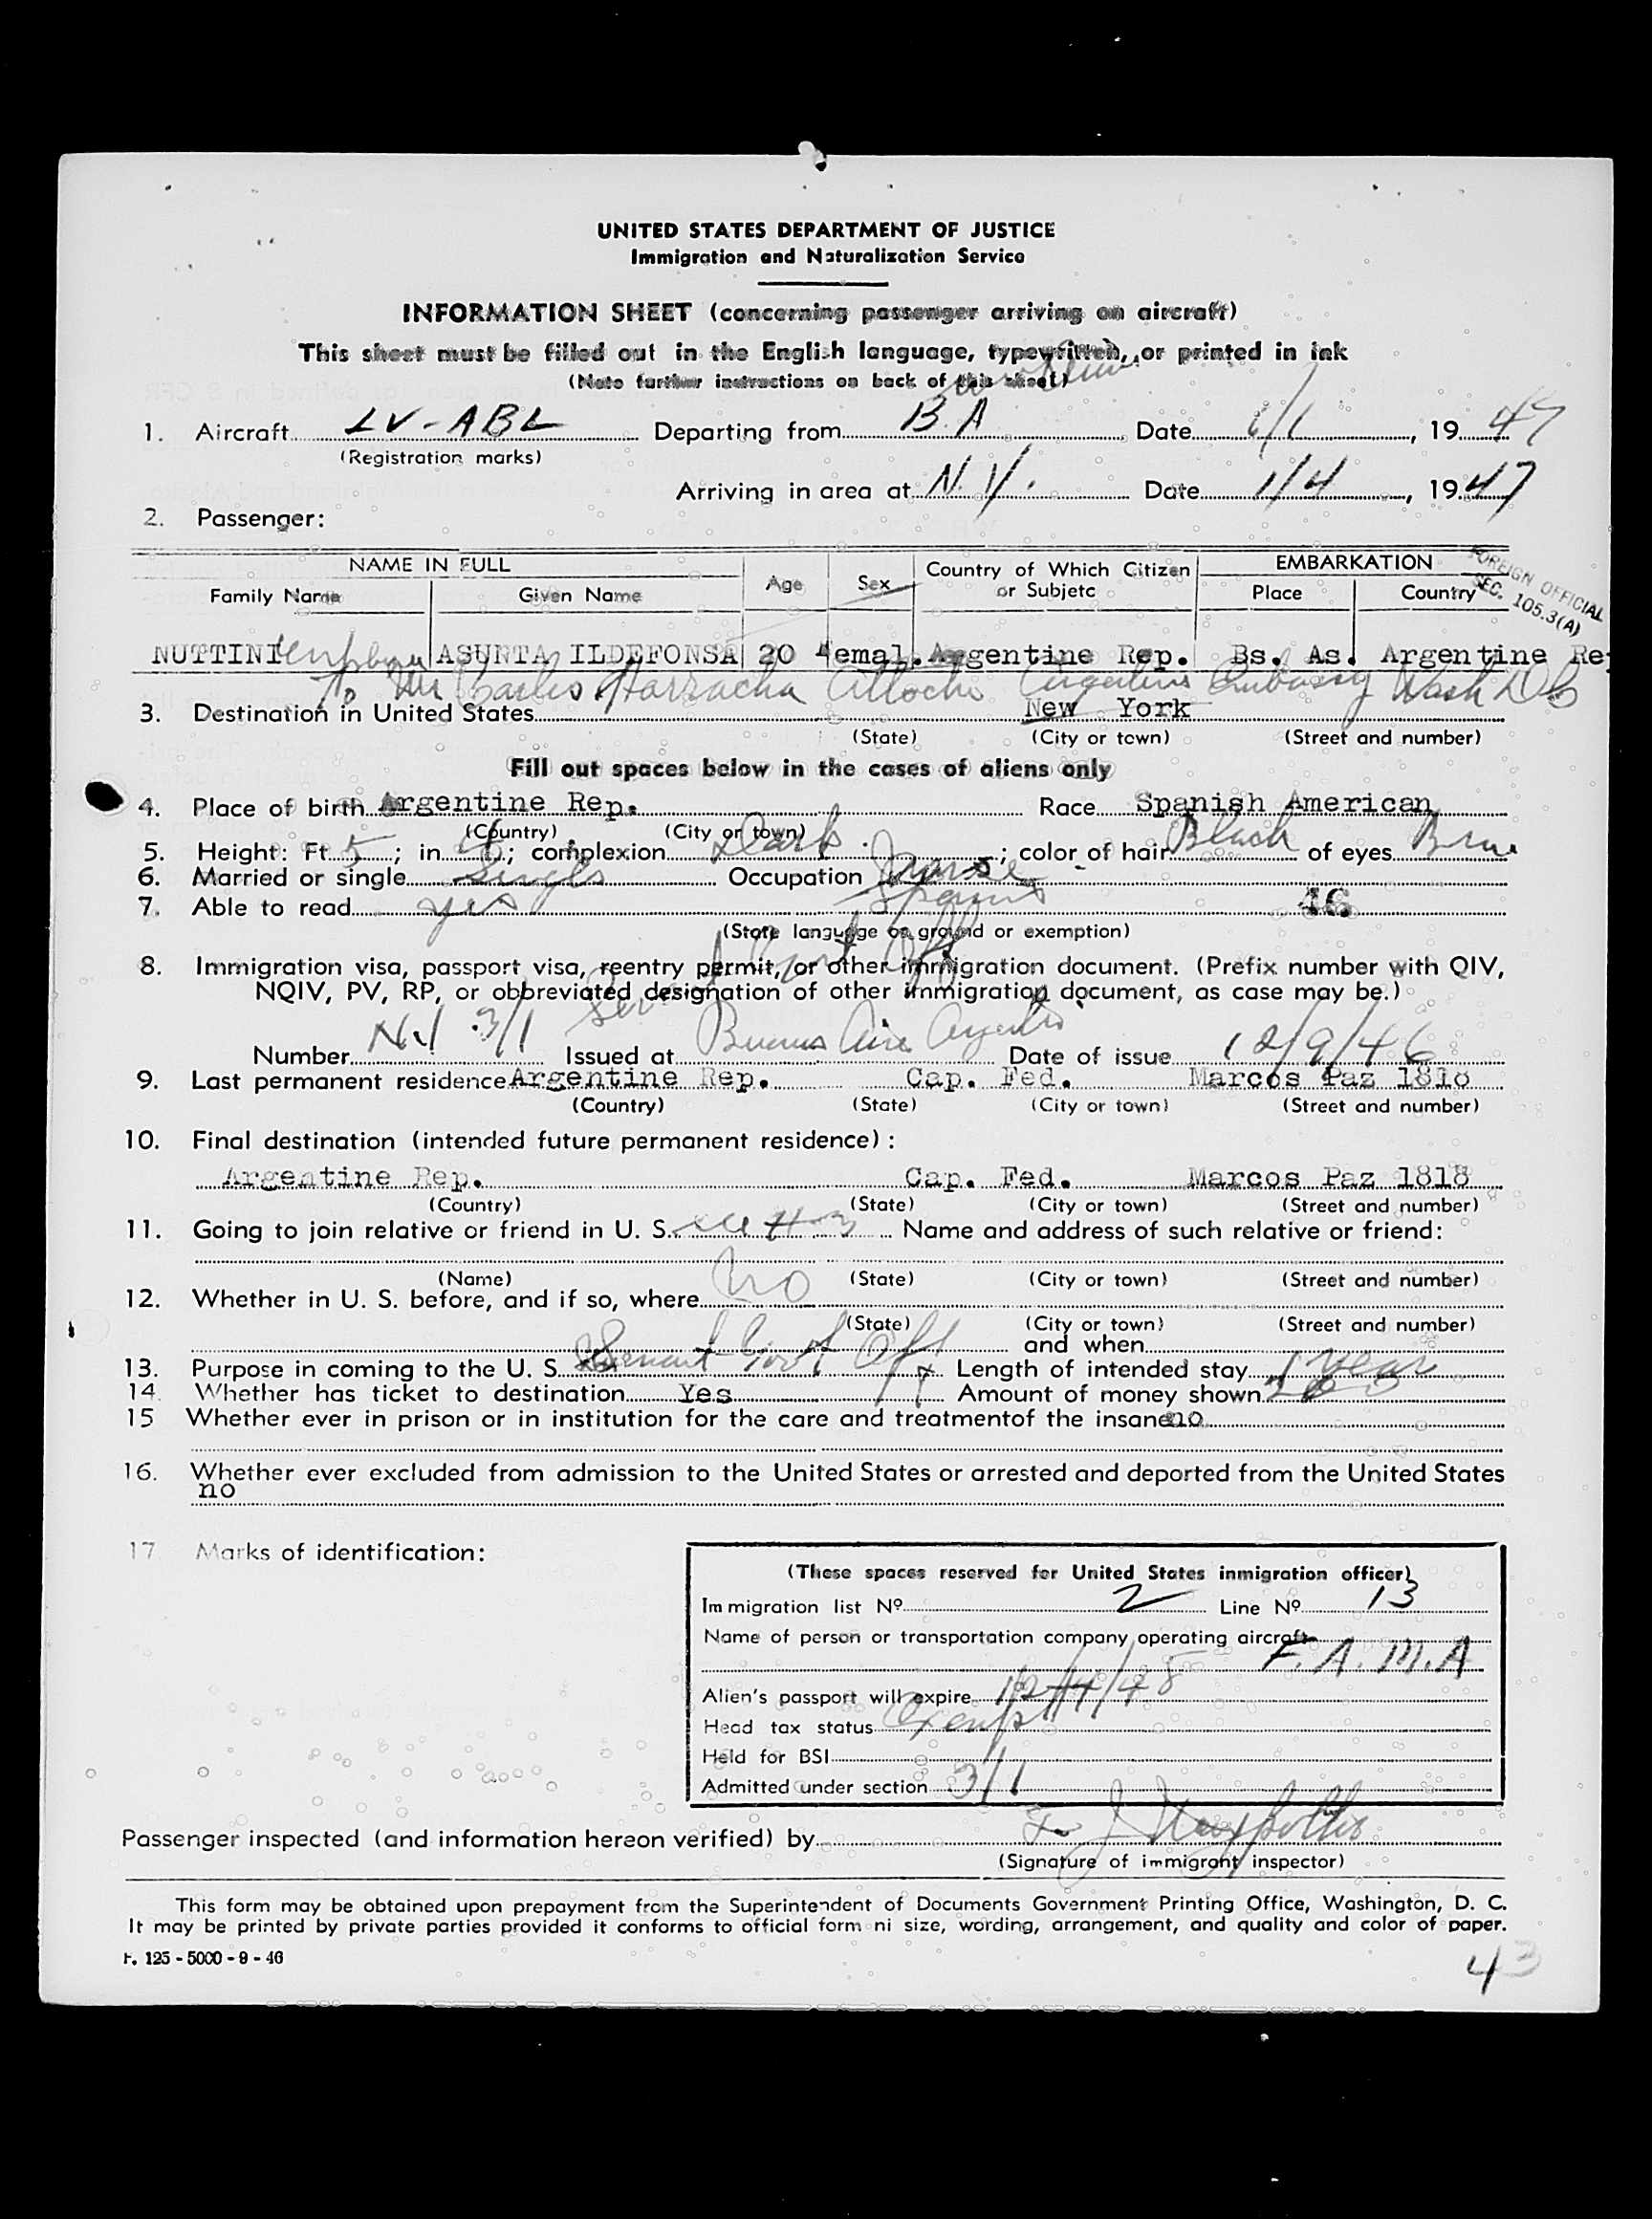 UNITED STATES DEPARTMENT OF JUSTICE
Immigration and Naturalization Service
INFORMATION SHEET (concerning passenger arriving on aircraft)
This sheet must be filled out in the English language, typewritten, or printed in ink
(Note further instructions on back of this sheet)
1. Aircraft LV-ABL Departing from B.A Date 1/1, 19 47
(Registration marks)
Arriving in area at N.Y. Date 1/4, 19 47
2. Passenger:
NAME IN FULL Age Sex Country of Which Citizen or Subjetc EMBARKATION
Family Name Given Name Place Country
FOREIGN OFFICIAL
SEC. 105.3(A)
NUTTINI ASUNTA ILDEFONSA 20 emal. Argentine Rep. Bs. As. Argentine Re
To Mr Carlos Argentine Embassy Wash DC
3. Destination in United States New York
(State) (City or town) (Street and number)
Fill out spaces below in the cases of aliens only
4. Place of birth Argentine Rep. Race Spanish American
(Country) (City or town)
5. Height: Ft. 5; in. ; complexion Dark; color of hair Black of eyes Brn
6. Married or single single Occupation Nurse
7. Able to read yes Spanis 46
(State language or ground or exemption)
8. Immigration visa, passport visa, reentry permit, or other immigration document. (Prefix number with QIV,
NQIV, PV, RP, or obbreviated designation of other immigration document, as case may be.)
Servant Govt Off
Number 3/1 Issued at Buenos Aires Argentin Date of issue 12/9/46
9. Last permanent residence Argentine Rep. Cap. Fed. Marcos Paz 1818
(Country) (State) (City or town) (Street and number)
10. Final destination (intended future permanent residence):
Argentine Rep. Cap. Fed. Marcos Paz 1818
(Country) (State) (City or town) (Street and number)
11. Going to join relative or friend in U. S. #3 Name and address of such relative or friend:
(Name) (State) (City or town) (Street and number)
12. Whether in U. S. before, and if so, where No
(State) (City or town) (Street and number)
and when
13. Purpose in coming to the U. S. Servant Govt Off Length of intended stay 1 year
14. Whether has ticket to destination Yes Amount of money shown
15 Whether ever in prison or in institution for the care and treatmentof the insane no
16. Whether ever excluded from admission to the United States or arrested and deported from the United States
no
17 Marks of identification:
(These spaces reserved for United States inmigration officer)
Immigration list Nº 2 Line Nº 13
Name of person or transportation company operating aircraft
F.A.M.A
Alien's passport will expire 12/4/48
Head tax status Exempt
Held for BSI
Admitted under section 3/1
Passenger inspected (and information hereon verified) by
(Signature of immigrant inspector)
This form may be obtained upon prepayment from the Superintendent of Documents Government Printing Office, Washington, D. C.
It may be printed by private parties provided it conforms to official form ni size, wording, arrangement, and quality and color of paper.
F. 125 - 5000 - 9 - 46
43